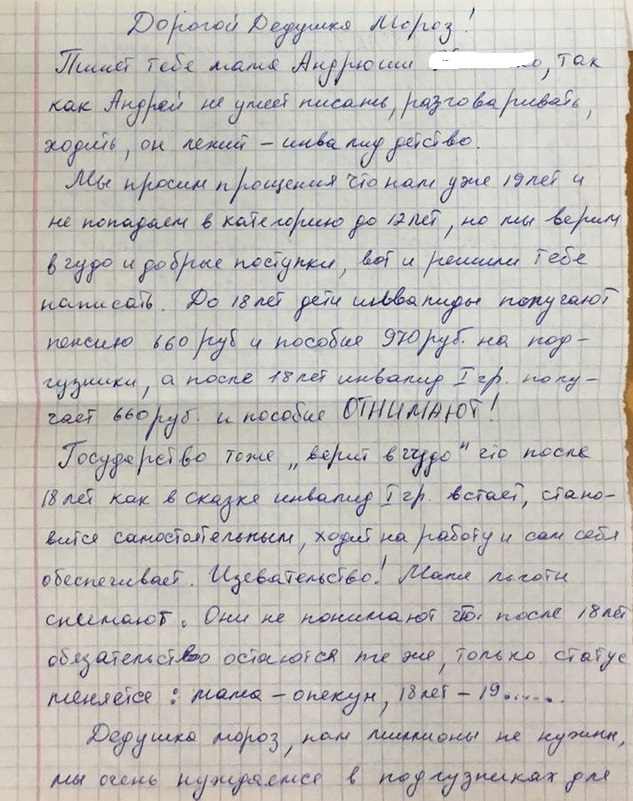 Дорогой Дедушка Мороз!
Пишет тебе мама Андрюши о, так
как Андрей не умеет писать, разговаривать,
ходить, он лежит – инвалид детство.
Мы просим прощения что нам уже 19 лет и
не попадаем в категорию до 12 лет, но мы верим
в чудо и добрые поступки, вот и решили тебе
написать. До 18 лет дети инвалиды получают
пенсию 660 руб и пособие 970 руб. на под-
гузники, а после 18 лет инвалид I гр. полу-
чает 660 руб. и пособие ОТНИМАЮТ!
Государство тоже „верит в чудо" что после
18 лет как в сказке инвалид I гр. встает, стано-
вится самостоятельным, ходит на работу и сам себя
обеспечивает. Издевательство! Маме льготы
снимают. Они не понимают что после 18 лет
обязательство остаются те же, только статус
меняется: мама – опекун, 18 лет – 19......
Дедушка мороз, нам миллионы не нужны,
мы очень нуждаемся в подгузниках для